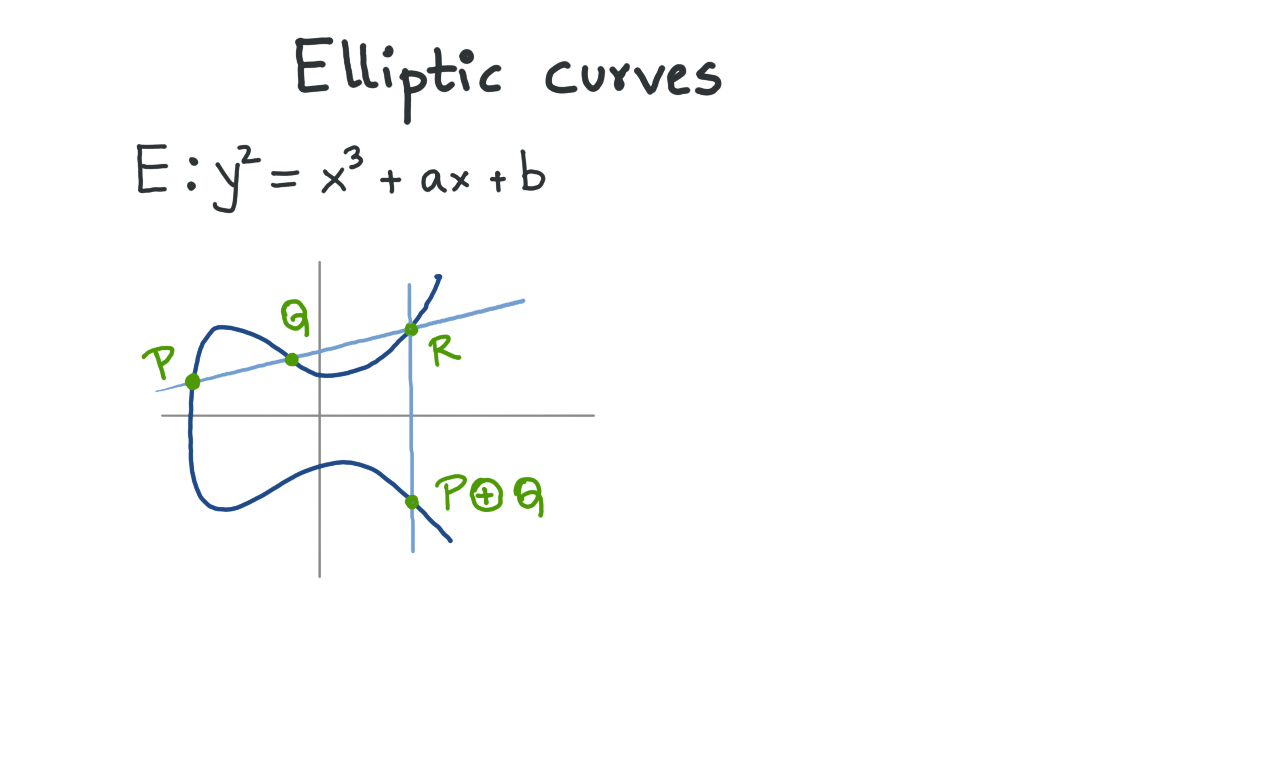 Elliptic curves
E : y² = x³ + ax + b
Q
P
R
P ⊕ Q